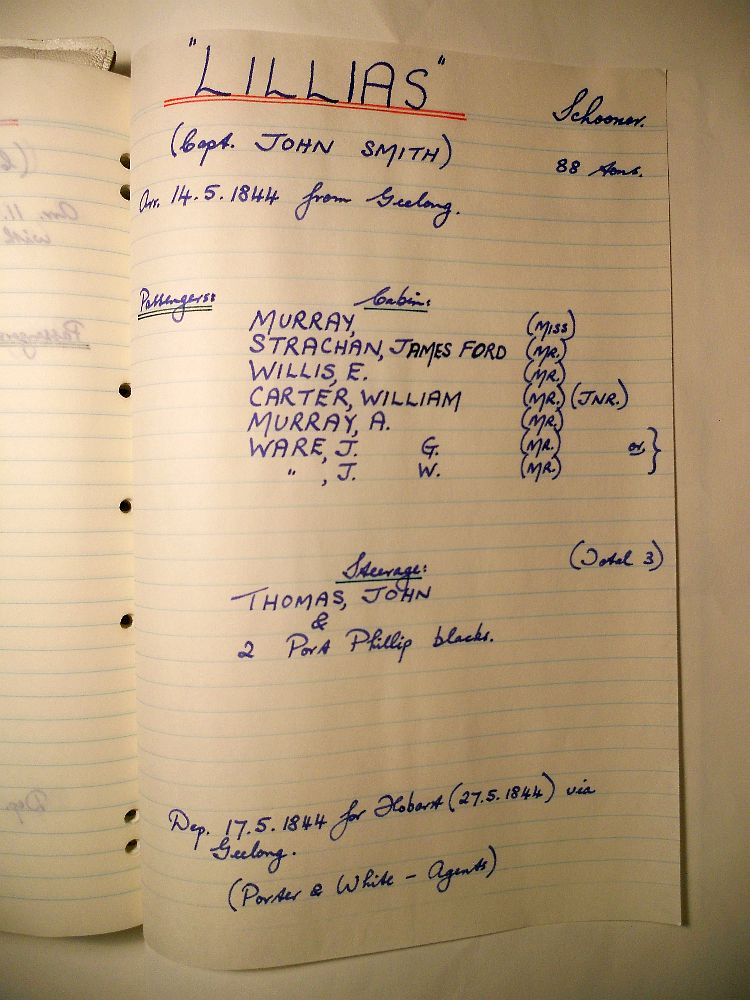 "LILLIAS"
Schooner.
(Capt. JOHN SMITH)
88 tons.
Arr. 14.5.1844 from Geelong.
Passengers:
Cabin:
MURRAY, (MISS)
STRACHAN, JAMES FORD (MR.)
WILLIS, E. (MR.)
CARTER, WILLIAM (MR.) (JNR.)
MURRAY, A. (MR.)
WARE, J. G. (MR.) or }
" , J. W. (MR.)
Steerage: (Total 3)
THOMAS, JOHN
&
2 Port Phillip blacks.
Dep. 17.5.1844 for Hobart (27.5.1844) via
Geelong.
(Porter & White - Agents)